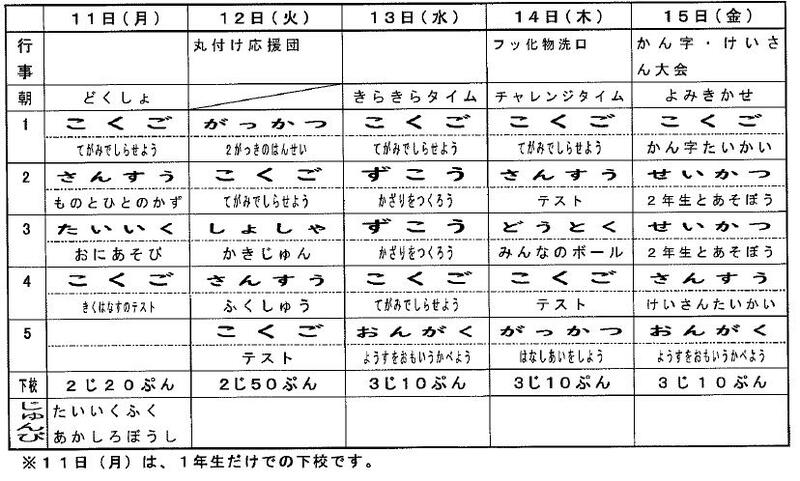 11日(月) 12日(火) 13日(水) 14日(木) 15日(金)
行事 丸付け応援団 フッ化物洗口 かん字・けいさ
ん大会
朝 どくしょ きらきらタイム チャレンジタイム よみきかせ
1 こくご がっかつ こくご こくご こくご
てがみでしらせよう 2がっきのはんせい てがみでしらせよう てがみでしらせよう かん字たいかい
2 さんすう こくご ずこう さんすう せいかつ
ものとひとのかず てがみでしらせよう かざりをつくろう テスト 2年生とあそぼう
3 たいいく しょしゃ ずこう どうとく せいかつ
おにあそび かきじゅん かざりをつくろう みんなのボール 2年生とあそぼう
4 こくご さんすう こくご こくご さんすう
きくはなすのテスト ふくしゅう てがみでしらせよう テスト けいさんたいかい
5 こくご おんがく がっかつ おんがく
テスト ようすをおもいうかべよう はなしあいをしよう ようすをおもいうかべよう
下校 2じ20ぷん 2じ50ぷん 3じ10ぷん 3じ10ぷん 3じ10ぷん
じゅんび たいいくふく
あかしろぼうし
※11日(月)は、1年生だけでの下校です。